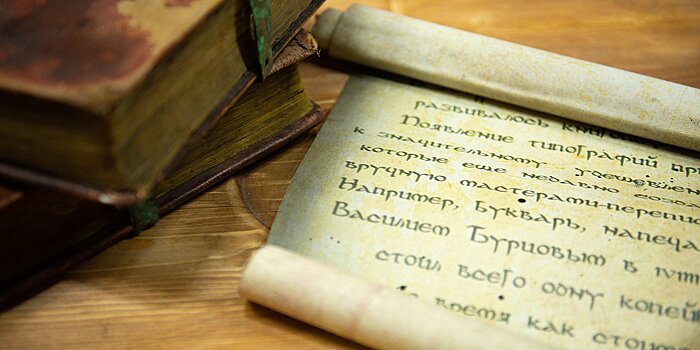 развивалось
Появление типографий
к значительному
которые еще недавно
вручную мастерами-перепи
Например, Букварь, напеча
Василием Бурцовым в
стоил всего одну копей
время как стоим